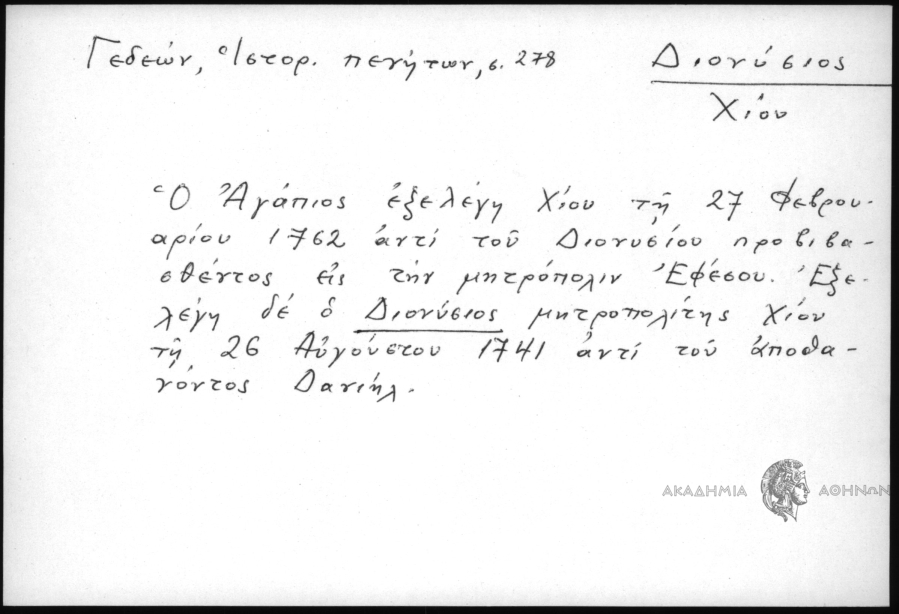 Γεδεών, Ἱστορ. πενήτων, σ. 278
Διονύσιος
Χίου
Ὁ Ἀγάπιος ἐξελέγη Χίου τῇ 27 Φεβρου-
αρίου 1762 ἀντί τοῦ Διονυσίου προβιβα-
σθέντος εἰς τήν μητρόπολιν Ἐφέσου. Ἐξε-
λέγη δέ ὁ Διονύσιος μητροπολίτης Χίου
τῇ 26 Αὐγούστου 1741 ἀντί τοῦ ἀποθα-
νόντος Δανιήλ.
ΑΚΑΔΗΜΙΑ ΑΘΗΝΩΝ